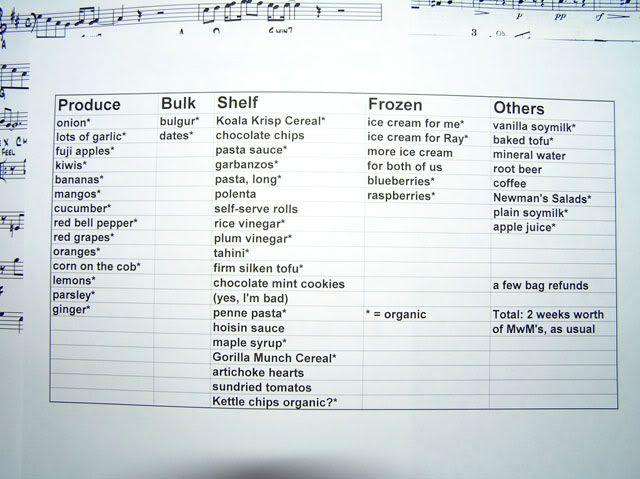 A
p
pp
sf
3
Ob.
A
FEEL
Produce
onion*
lots of garlic*
fuji apples*
kiwis*
bananas*
mangos*
cucumber*
red bell pepper*
red grapes*
oranges*
corn on the cob*
lemons*
parsley*
ginger*
Bulk
bulgur*
dates*
Shelf
Koala Krisp Cereal*
chocolate chips
pasta sauce*
garbanzos*
pasta, long*
polenta
self-serve rolls
rice vinegar*
plum vinegar*
tahini*
firm silken tofu*
chocolate mint cookies
(yes, I'm bad)
penne pasta*
hoisin sauce
maple syrup*
Gorilla Munch Cereal*
artichoke hearts
sundried tomatos
Kettle chips organic?*
Frozen
ice cream for me*
ice cream for Ray*
more ice cream
for both of us
blueberries*
raspberries*
* = organic
Others
vanilla soymilk*
baked tofu*
mineral water
root beer
coffee
Newman's Salads*
plain soymilk*
apple juice*
a few bag refunds
Total: 2 weeks worth
of MwM's, as usual